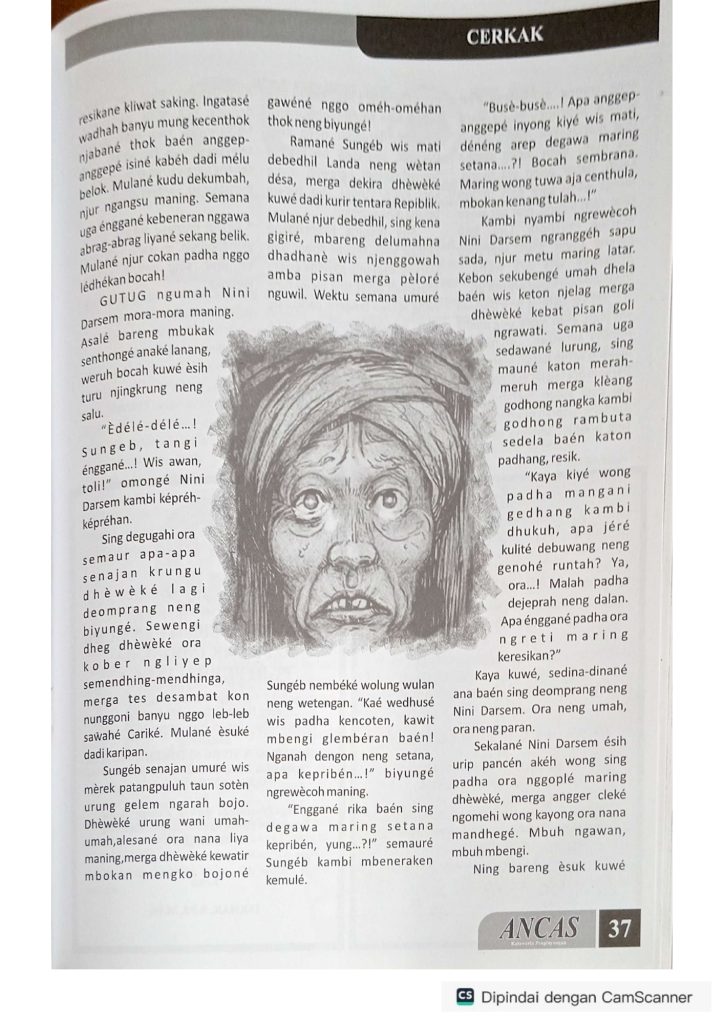 CERKAK
resikane kliwat saking. Ingatasé
wadhah banyu mung kecenthok
njabané thok baén anggep-
anggepé isiné kabéh dadi mélu
belok. Mulané kudu dekumbah,
njur ngangsu maning. Semana
uga énggané kebeneran nggawa
abrag-abrag liyané sekang belik.
Mulané njur cokan padha nggo
lédhékan bocah!
GUTUG ngumah Nini
Darsem mora-mora maning.
Asalé bareng mbukak
senthongé anaké lanang,
weruh bocah kuwé èsih
turu njingkrung neng
salu.
“Èdélé-délé...!
Sungeb, tangi
énggané...! Wis awan,
toli!” omongé Nini
Darsem kambi képréh-
képréhan.
Sing degugahi ora
semaur apa-apa
senajan krungu
dhèwèké lagi
deomprang neng
biyungé. Sewengi
dheg dhèwèké ora
kober ngliyep
semendhing-mendhinga,
merga tes desambat kon
nunggoni banyu nggo leb-leb
sawahé Cariké. Mulané èsuké
dadi karipan.
Sungéb senajan umuré wis
mèrek patangpuluh taun sotèn
urung gelem ngarah bojo.
Dhèwèké urung wani umah-
umah,alesané ora nana liya
maning,merga dhèwèké kewatir
mbokan mengko bojoné
gawéné nggo oméh-oméhan
thok neng biyungé!
Ramané Sungéb wis mati
debedhil Landa neng wètan
désa, merga dekira dhèwèké
kuwé dadi kurir tentara Repiblik.
Mulané njur debedhil, sing kena
gigiré, mbareng delumahna
dhadhanè wis njenggowah
amba pisan merga pèloré
nguwil. Wektu semana umuré
Sungéb nembéké wolung wulan
neng wetengan. “Kaé wedhusé
wis padha kencoten, kawit
mbengi glembéran baén!
Nganah dengon neng setana,
apa kepribén...!” biyungé
ngrewècoh maning.
“Enggané rika baén sing
degawa maring setana
kepribén, yung...?!” semauré
Sungéb kambi mbeneraken
kemulé.
“Busè-busè....! Apa anggep-
anggepé inyong kiyé wis mati,
dénéng arep degawa maring
setana....?! Bocah sembrana.
Maring wong tuwa aja centhula,
mbokan kenang tulah...!”
Kambi nyambi ngrewècoh
Nini Darsem ngranggéh sapu
sada, njur metu maring latar.
Kebon sekubengé umah dhela
baén wis keton njelag merga
dhèwèké kebat pisan goli
ngrawati. Semana uga
sedawané lurung, sing
mauné katon merah-
meruh merga klèang
godhong nangka kambi
godhong rambuta
sedela baén katon
padhang, resik.
“Kaya kiyé wong
padha mangani
gedhang kambi
dhukuh, apa jéré
kulité debuwang neng
genohé runtah? Ya,
ora...! Malah padha
dejeprah neng dalan.
Apa énggané padha ora
ngreti maring
keresikan?”
Kaya kuwé, sedina-dinané
ana baén sing deomprang neng
Nini Darsem. Ora neng umah,
ora neng paran.
Sekalané Nini Darsem ésih
urip pancén akéh wong sing
padha ora nggoplé maring
dhèwèké, merga angger cleké
ngomehi wong kayong ora nana
mandhegé. Mbuh ngawan,
mbuh mbengi.
Ning bareng èsuk kuwé
ANCAS
37
CS Dipindai dengan CamScanner